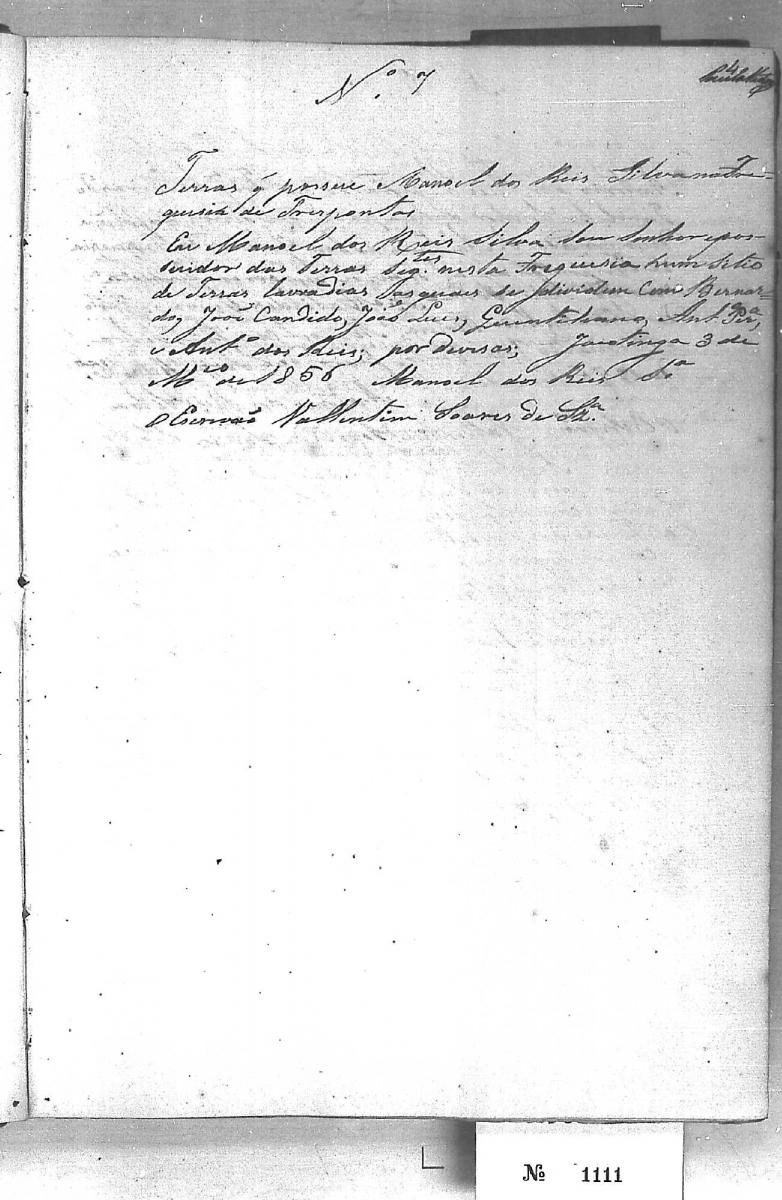 N.º 7
4
Terras q̃ possue Manoel dos Reis Silva na Fre-
guesia de Trespontas
Eu Manoel dos Reis Silva Sou Senhor e pos-
suidor das Terras Seg.tes nesta Freguesia hum Sitio
de Terras lavradias as quaes se dividem Com Bernar-
do, João Candido, João Luis, Ant.º Per.ª,
i Ant.º dos Reis, por devisas; Jacotinga 3 de
M.ço de 1856 Manoel dos Reis S.ª
O Escrivão Vallentim Soares de Sz.ª
Nº 1111